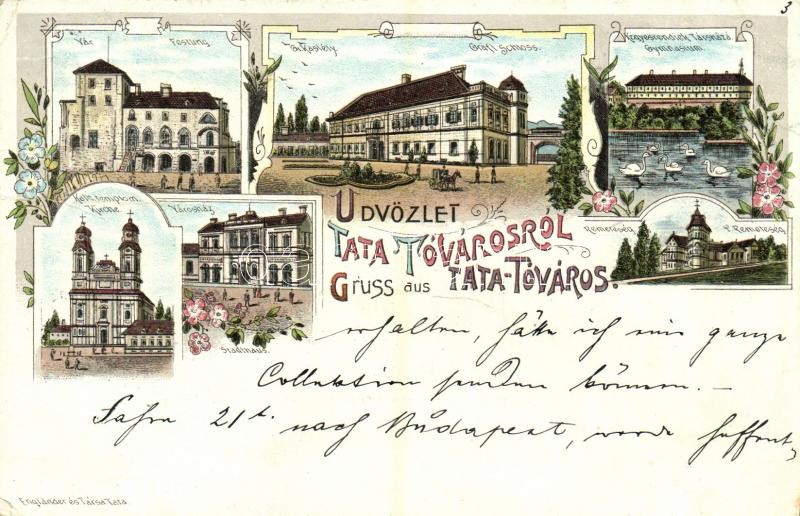 3
Vár Festung
Gr. Kastély Gräfl. Schloss.
Kegyesrendiek Társháza
Gymnasium.
Kath. templom.
Kirche
Városház
Stadthaus.
Remeteség
ÜDVÖZLET
TATA TÓVÁROSRÓL
GRUSS aus TATA-TÓVÁROS.
erhalten, hätte ich eine ganze
Collektion senden können. —
Fahre 21t. nach Budapest, werde hoffent-
Engländer és Társa Tata.